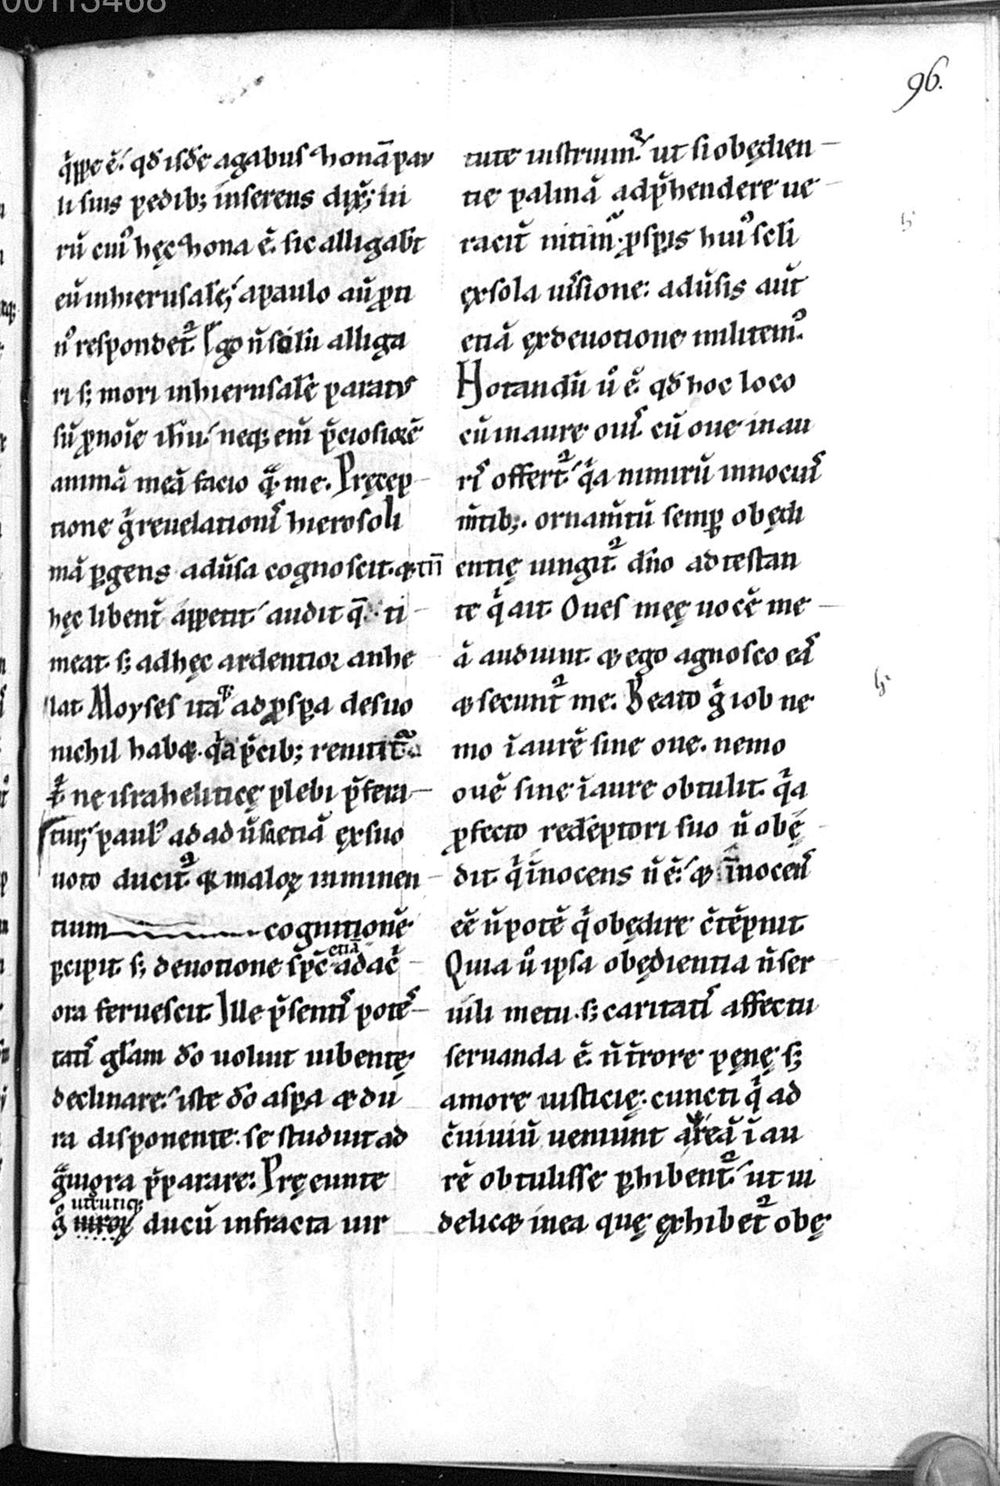 00113468
96.
q̇ppe ē. qd̄ isdē agabus zhonā pau
li suis pedib; inserens dix̄; ui
rū cui᾽ hęc zhona ē. sic alligab̄t
eū in hierusalē; a paulo aū p̄ti
n᾽ respondet᷑ Ego n̄ solū alliga
ri s; mori in hierusalē paratus
sū p noīe ih̄u. neq; eni᷑ p̄ciosiorē
animā meā facio quā me. Pręcep
tione g̊ reuelationis hierosoli
mā pgens aduͥsa cognoscit. & tn̄
hęc libent᷑ appetit. audit q̄ ti
meat. s; ad hęc ardentior anhe
lat Moyses itaq; ad pspa de suo
nichil hab&. q̇a p̄cib; renitit᷑
ne israheliticę plebi p̄fera
tur; paul᾽ ad aduͥsa etiā ex suo
uoto ducit᷑ & malor̨ inminen
tium cognitionē
pcipit s; deuotione sp̄c etiā ad ac̄
ora feruescit Ille p̄sentis potes
tatis gl̄am dō uoluit iubentę
declinare. iste dō aspa & du
ra disponente. se studuit ad
g̊uiora p̄parare. Pręeunte
g̊ utrunq; ducū infracta uir
tute instruim᷑. ut si obędien
tię palmā adp̄hendere ue
racit᷑ nitim᷑. pspis hui᾽ scl̄i
ex sola iussione. aduͥsis aūt
etiā ex deuotione militem᾽.
Notandū uͦ ē qd̄ hoc loco
cū inaure ouis. cū oue in au
ris offert᷑. q̇a nimirū innocuis
m̄tib;. ornam̄tū semp obędi
entię iungit᷑ dn̄o adtestan
te q̇ ait Oues meę uocē me
ā audiunt & ego agnosco eas
& secunt᷑ me. Beato g̊ iob ne
mo īaurē sine oue. nemo
ouē sine īaure obtulit. q̇a
pfecto redēptori suo n̄ obę
dit q̇ īnocens n̄ ē. & īnocens
eē n̄ potē q̇ obędire c̄tēpnit
Quia uͦ ipsa obędientia n̄ ser
uili metu. s; caritatis affectu
seruanda ē. n̄ t̄rore penę s;
amore iusticię. cuncti q̇ ad
c̄uiuiū ueniunt aureā īau
rē obtulisse phibent᷑. ut ui
delic& in ea quę exhibet᷑ obę